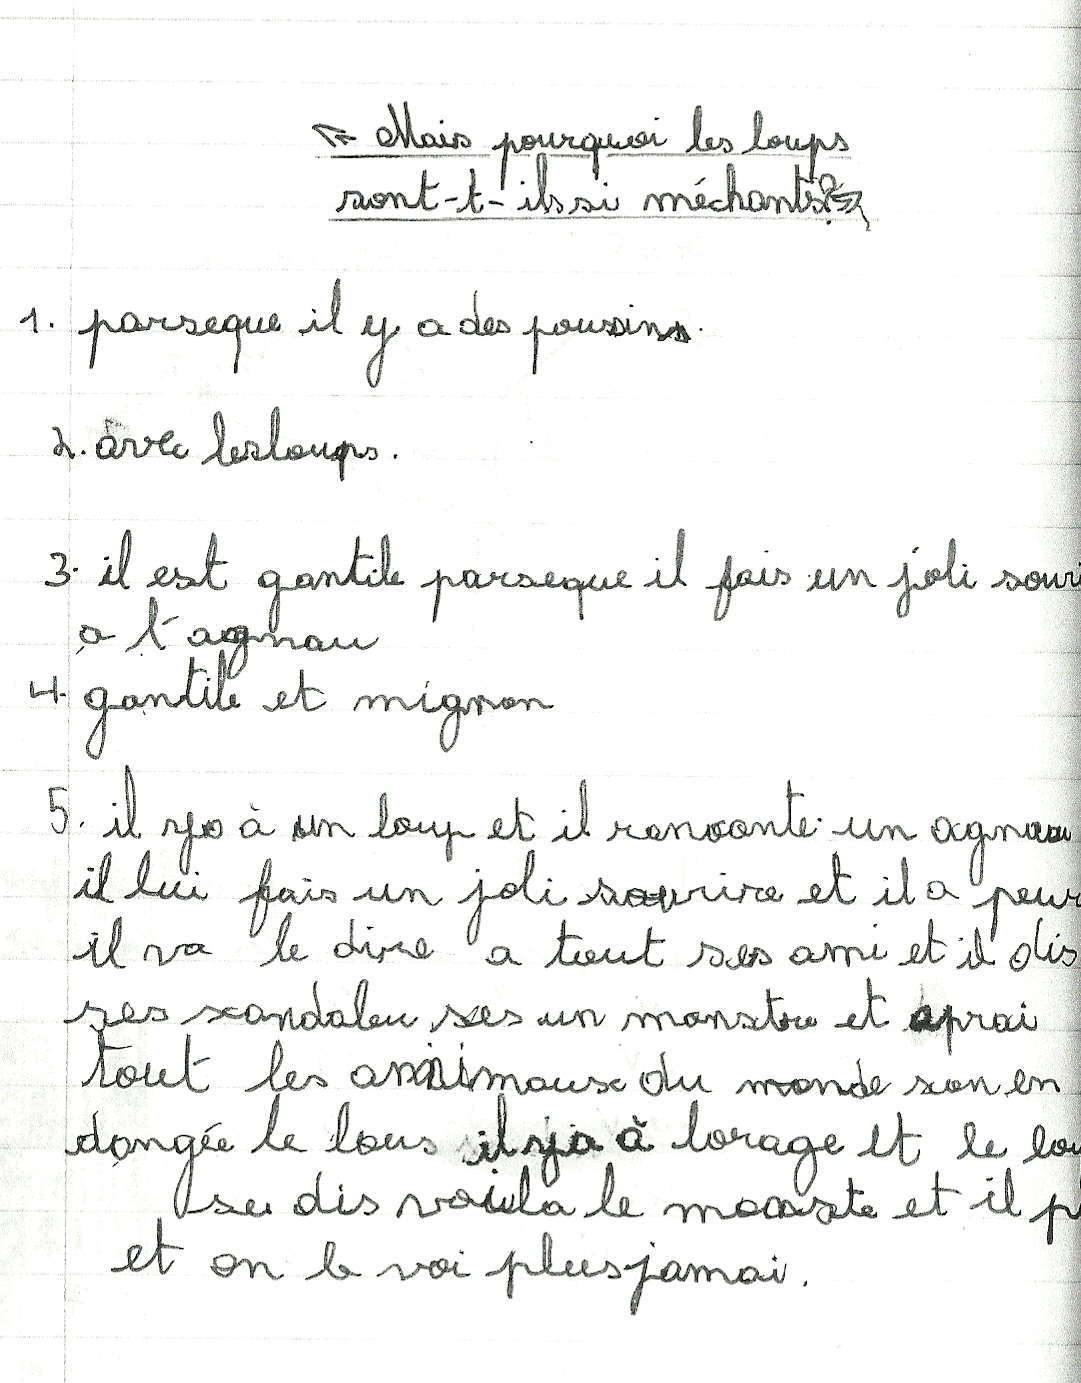 " Mais pourquoi les loups
sont-t-ils si méchants? "
1. parseque il y a des pousins.
2. avec les loups.
3. il est gantile parseque il fais un joli souri
a l'agnau
4. gantile et mignon
5. il ya à un loup et il renconte un agnau
il lui fais un joli sourire et il a peur
il va le dire a tout ses ami et il dis
ses scandaleu ses un monstre et aprai
tout les animaux du monde son en
dangée le lous il ya à lorage et le lou
se dis voila le monste et il p
et on le voi plus jamai.